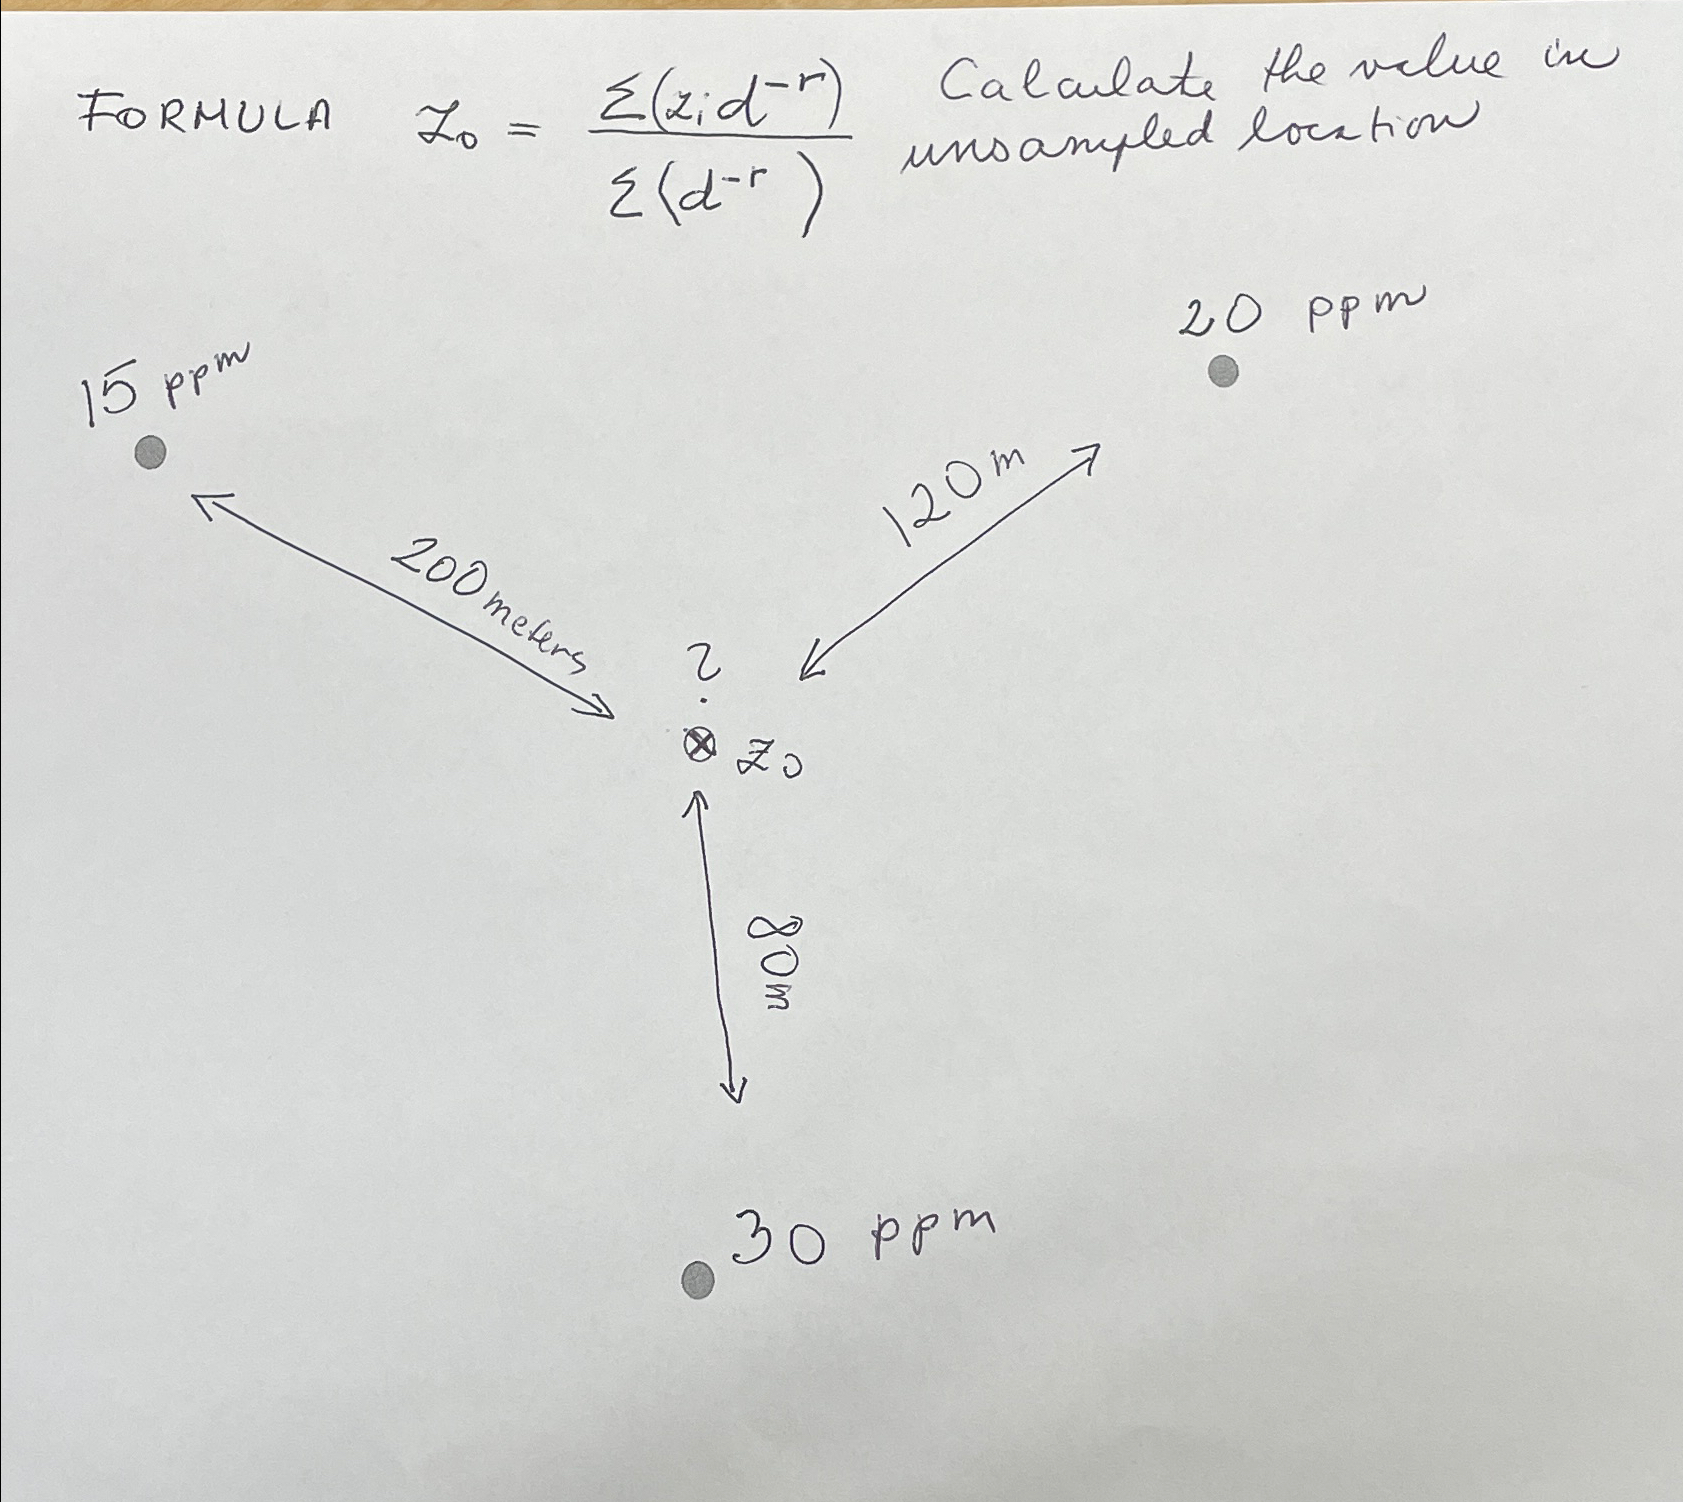 FORMULA Z₀ = Σ(zᵢd⁻ʳ) / Σ(d⁻ʳ)
Calculate the value in
unsampled location
20 ppm
15 ppm
120 m
200 meters
?
Z₀
80 m
30 ppm